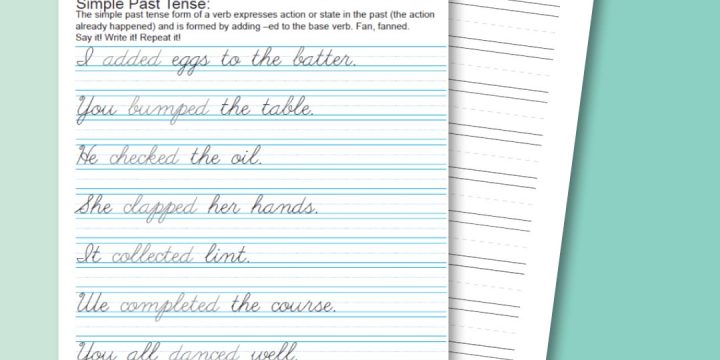 Simple Past Tense:
The simple past tense form of a verb expresses action or state in the past (the action
already happened) and is formed by adding –ed to the base verb. Fan, fanned.
Say it! Write it! Repeat it!
I added eggs to the batter.
You bumped the table.
He checked the oil.
She clapped her hands.
It collected lint.
We completed the course.
You all danced well.